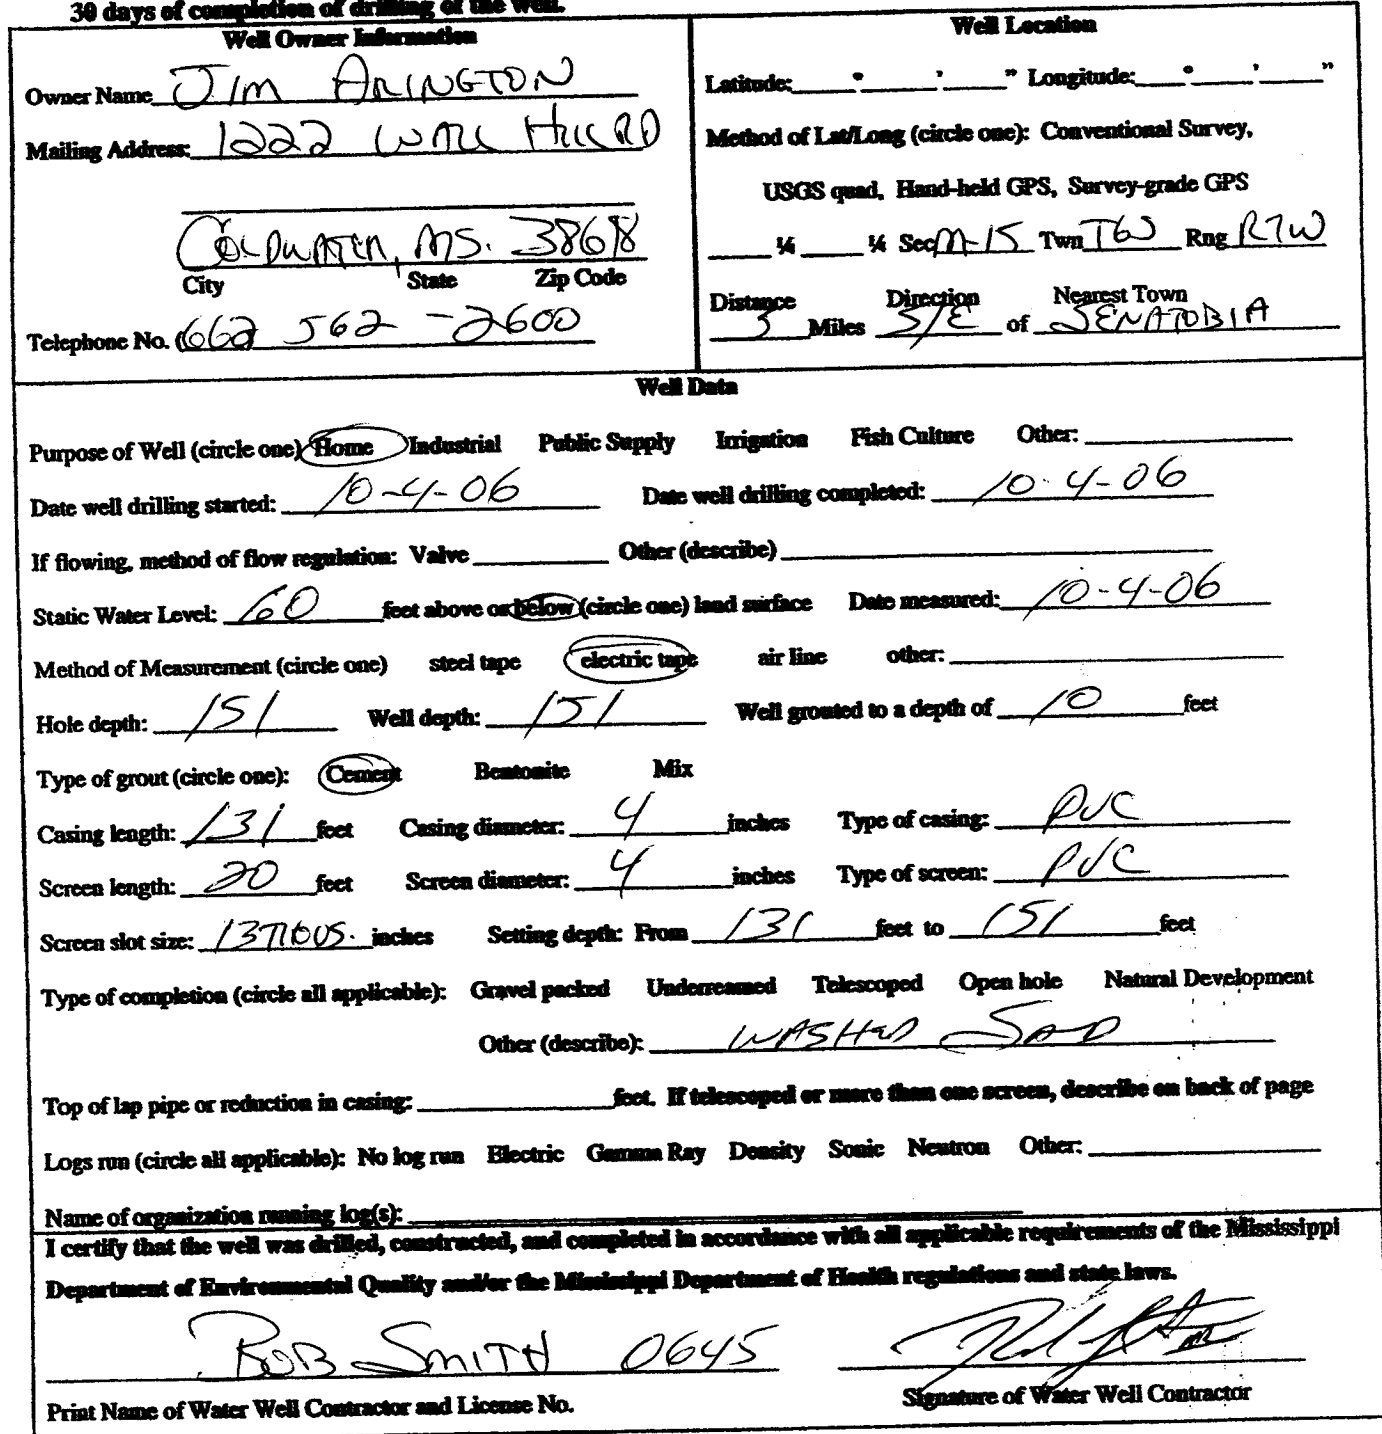 30 days of completion of drilling of the well.
Well Owner Information
Owner Name JIM ARINGTON
Mailing Address: 1222 WALL HILL RD
COLDWATER, MS. 38618
City State Zip Code
Telephone No. (662 562 - 2600
Well Location
Latitude:____°____'____" Longitude:____°____'____"
Method of Lat/Long (circle one): Conventional Survey,
USGS quad, Hand-held GPS, Survey-grade GPS
____¼ ____¼ Sec M-15 Twn T6S Rng R7W
Distance Direction Nearest Town
3 Miles S/E of SENATOBIA
Well Data
Purpose of Well (circle one) Home Industrial Public Supply Irrigation Fish Culture Other:
Date well drilling started: 10-4-06 Date well drilling completed: 10-4-06
If flowing, method of flow regulation: Valve ____ Other (describe)
Static Water Level: 60 feet above or below (circle one) land surface Date measured: 10-4-06
Method of Measurement (circle one) steel tape electric tape air line other:
Hole depth: 151 Well depth: 151 Well grouted to a depth of 10 feet
Type of grout (circle one): Cement Bentonite Mix
Casing length: 131 feet Casing diameter: 4 inches Type of casing: PVC
Screen length: 20 feet Screen diameter: 4 inches Type of screen: PVC
Screen slot size: 13 THOUS. inches Setting depth: From 131 feet to 151 feet
Type of completion (circle all applicable): Gravel packed Underreamed Telescoped Open hole Natural Development
Other (describe): WASHED SAND
Top of lap pipe or reduction in casing: ____ feet. If telescoped or more than one screen, describe on back of page
Logs run (circle all applicable): No log run Electric Gamma Ray Density Sonic Neutron Other:
Name of organization running log(s):
I certify that the well was drilled, constructed, and completed in accordance with all applicable requirements of the Mississippi
Department of Environmental Quality and/or the Mississippi Department of Health regulations and state laws.
BOB SMITH 0645
Print Name of Water Well Contractor and License No.
Signature of Water Well Contractor